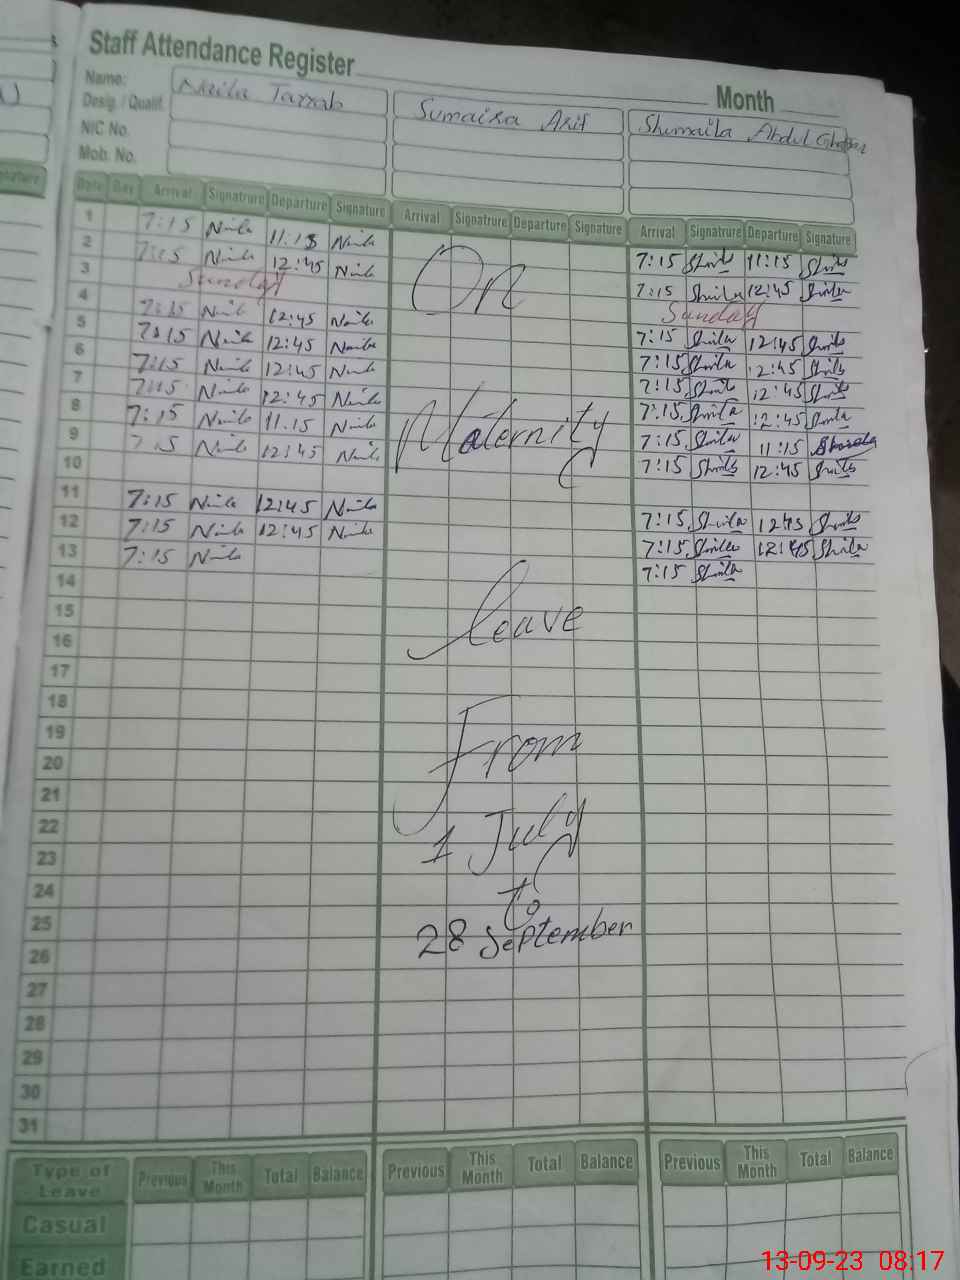 Staff Attendance Register
Month
Name: Naila Tayyab Sumaira Arif Shumaila Abdul Ghaffar
Desig. / Qualif.
NIC No.
Mob. No.
Date Day Arrival Signatrure Departure Signature Arrival Signatrure Departure Signature Arrival Signatrure Departure Signature
1 7:15 Naila 11:15 Naila 7:15 Shaila 11:15 Shaila
2 7:15 Naila 12:45 Naila 7:15 Shaila 12:45 Shaila
3 Sunday Sunday
4 7:15 Naila 12:45 Naila 7:15 Shaila 12:45 Shaila
5 7:15 Naila 12:45 Naila 7:15 Shaila 12:45 Shaila
6 7:15 Naila 12:45 Naila 7:15 Shaila 12:45 Shaila
7 7:15 Naila 12:45 Naila 7:15 Shaila 12:45 Shaila
8 7:15 Naila 11.15 Naila 7:15 Shaila 11:15
9 Naila 12:45 Naila 7:15 Shaila 12:45 Shaila
10
11 7:15 Naila 12:45 Naila 7:15 Shaila 12:45 Shaila
12 7:15 Naila 12:45 Naila 7:15 Shaila 12:45 Shaila
13 7:15 Naila 7:15 Shaila
14
15
16
17
18
19
20
21
22
23
24
25
26
27
28
29
30
31
On
Maternity
leave
From
1 July
to
28 September
Type of Leave Previous This Month Total Balance Previous This Month Total Balance Previous This Month Total Balance
Casual
Earned
13-09-23 08:17